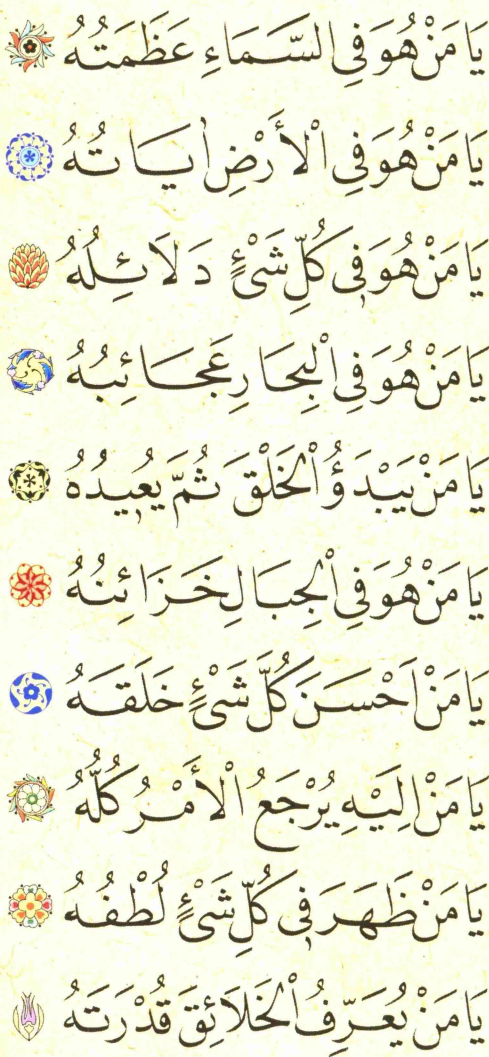 يَا مَنْ هُوَ فِى السَّمَاءِ عَظَمَتُهُ
يَا مَنْ هُوَ فِى الْأَرْضِ اٰيَاتُهُ
يَا مَنْ هُوَ فِى كُلِّ شَىْءٍ دَلَائِلُهُ
يَا مَنْ هُوَ فِى الْبِحَارِ عَجَائِبُهُ
يَا مَنْ يَبْدَؤُ الْخَلْقَ ثُمَّ يُعِيدُهُ
يَا مَنْ هُوَ فِى الْجِبَالِ خَزَائِنُهُ
يَا مَنْ اَحْسَنَ كُلَّ شَىْءٍ خَلَقَهُ
يَا مَنْ اِلَيْهِ يُرْجَعُ الْأَمْرُ كُلُّهُ
يَا مَنْ ظَهَرَ فِى كُلِّ شَىْءٍ لُطْفُهُ
يَا مَنْ يُعَرِّفُ الْخَلَائِقَ قُدْرَتَهُ